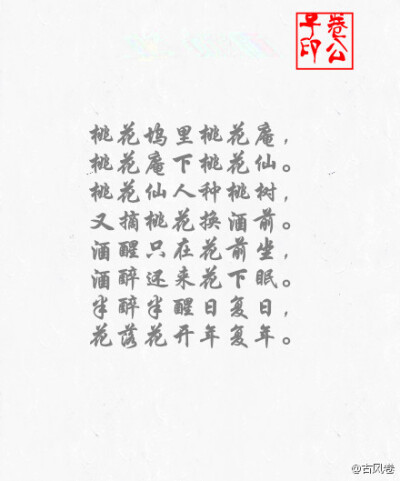 桃花坞里桃花庵，
桃花庵下桃花仙。
桃花仙人种桃树，
又摘桃花换酒前。
酒醒只在花前坐，
酒醉还来花下眠。
半醉半醒日复日，
花落花开年复年。
@古风卷